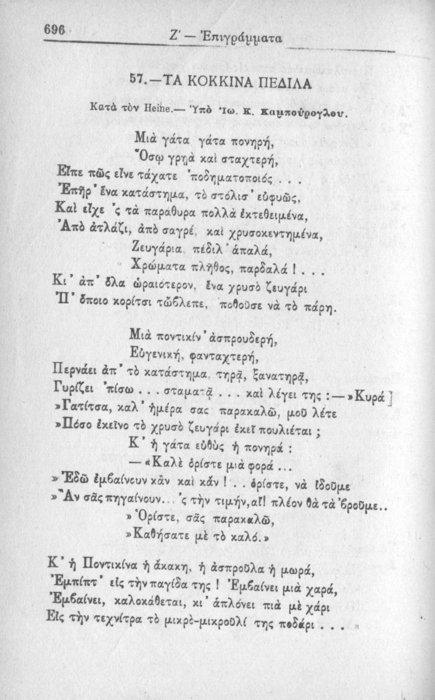 696
Ζ' — Ἐπιγράμματα
57.—ΤΑ ΚΟΚΚΙΝΑ ΠΕΔΙΛΑ
Κατὰ τὸν Heine.— Ὑπὸ Ἰω. Κ. Καμπούρογλου.
Μιὰ γάτα γάτα πονηρή,
Ὅσῳ γρηὰ καὶ σταχτερή,
Εἶπε πῶς εἶνε τάχατε ὑποδηματοποιός . . .
Ἐπῆρ' ἕνα κατάστημα, τὸ στόλισ' εὐφυῶς,
Καὶ εἶχε 'ς τὰ παράθυρα πολλὰ ἐκτεθειμένα,
Ἀπὸ ἀτλάζι, ἀπὸ σαγρέ, καὶ χρυσοκεντημένα,
Ζευγάρια πέδιλ' ἁπαλά,
Χρώματα πλῆθος, παρδαλά ! . . .
Κι' ἀπ' ὅλα ὡραιότερον, ἕνα χρυσὸ ζευγάρι
Π' ὅποιο κορίτσι τὤβλεπε, ποθοῦσε νὰ τὸ πάρῃ.
Μιὰ ποντικίν' ἀσπρουδερή,
Εὐγενική, φανταχτερή,
Περνάει ἀπ' τὸ κατάστημα, τηρᾷ, ξανατηρᾷ,
Γυρίζει 'πίσω . . . σταματᾷ . . . καὶ λέγει της :—»Κυρά ]
»Γατίτσα, καλ' ἡμέρα σας παρακαλῶ, μοῦ λέτε
»Πόσο ἐκεῖνο τὸ χρυσὸ ζευγάρι ἐκεῖ πουλιέται ;
Κ' ἡ γάτα εὐθὺς ἡ πονηρά :
— «Καλὲ ὁρίστε μιὰ φορά ...
»Ἐδῶ ἐμβαίνουν κἂν καὶ κἂν ! . . ὁρίστε, νὰ ἰδοῦμε
»Ἂν σᾶς πηγαίνουν... 'ς τὴν τιμήν, αἴ! πλέον θὰ τὰ 'βροῦμε..
»Ὁρίστε, σᾶς παρακαλῶ,
»Καθήσατε μὲ τὸ καλό.»
Κ' ἡ Ποντικίνα ἡ ἄκακη, ἡ ἀσπροῦλα ἡ μωρά,
Ἐμπίπτ' εἰς τὴν παγίδα της ! Ἐμβαίνει μιὰ χαρά,
Ἐμβαίνει, καλοκάθεται, κι' ἁπλόνει πιὰ μὲ χάρι
Εἰς τὴν τεχνίτρα τὸ μικρὸ-μικροῦλί της ποδάρι . . .